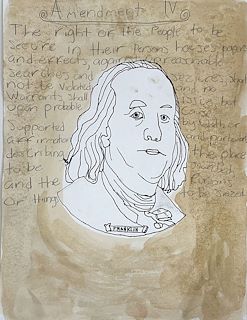 Amendmeet IV
The right of the People to be
secure in their Persons hoses, papers
and effects against unreasonable
searches and seizures, shall
not be violated and no
Warrants shall issue, but
upon probable
supported by oath or
affirmation
describing the place
to be
and the
or things to be siezed
FRANKLIN